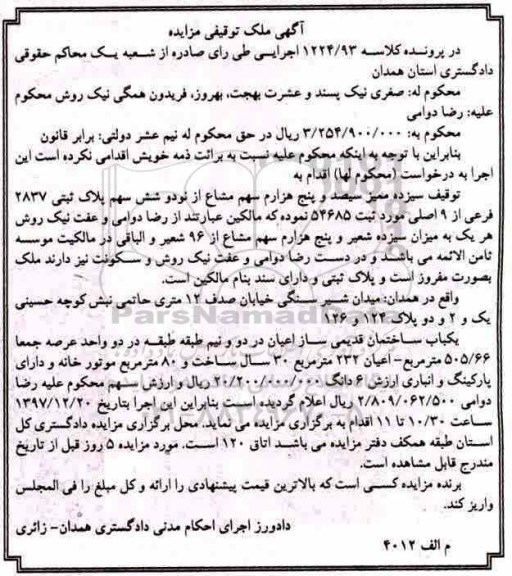 آگهی ملک توقیفی مزایده
در پرونده کلاسه ۱۲۲۴/۹۳ اجرایی طی رای صادره از شعبه یک محاکم حقوقی
دادگستری استان همدان
محکوم له: صغری نیک پسند و عشرت بهجت، بهروز، فریدون همگی نیک روش محکوم
علیه: رضا دوامی
محکوم به: ۳/۲۵۴/۹۰۰/۰۰۰ ریال در حق محکوم له نیم عشر دولتی: برابر قانون
بنابراین با توجه به اینکه محکوم علیه نسبت به برائت ذمه خویش اقدامی نکرده است این
اجرا به درخواست (محکوم لها) اقدام به
توقیف سیزده ممیز سیصد و پنج هزارم سهم مشاع از نودو شش سهم پلاک ثبتی ۲۸۳۷
فرعی از ۹ اصلی مورد ثبت ۵۴۶۸۵ نموده که مالکین عبارتند از رضا دوامی و عفت نیک روش
هر یک به میزان سیزده شعیر و پنج هزارم سهم مشاع از ۹۶ شعیر و الباقی در مالکیت موسسه
ثامن الائمه می باشد و در دست رضا دوامی و عفت نیک روش و سکونت نیز دارند ملک
بصورت مفروز است و پلاک ثبتی و دارای سند بنام مالکین است.
واقع در همدان: میدان شیر سنگی خیابان صدف ۱۲ متری حاتمی نبش کوچه حسینی
یک و ۲ و دو پلاک ۱۲۴ و ۱۲۶
یکباب ساختمان قدیمی ساز اعیان در دو و نیم طبقه طبقه در دو واحد عرصه جمعا
۵۰۵/۶۶ مترمربع- اعیان ۲۳۲ مترمربع ۳۰ سال ساخت و ۸۰ مترمربع موتور خانه و دارای
پارکینگ و انباری ارزش ۶ دانگ ۲۰/۲۰۰/۰۰۰/۰۰۰ ریال و ارزش سهم محکوم علیه رضا
دوامی ۲/۸۰۹/۰۶۲/۵۰۰ ریال اعلام گردیده است بنابراین این اجرا بتاریخ ۱۳۹۷/۱۲/۲۰
ساعت ۱۰/۳۰ تا ۱۱ اقدام به برگزاری مزایده می نماید. محل برگزاری مزایده دادگستری کل
استان طبقه همکف دفتر مزایده می باشد اتاق ۱۲۰ است. مورد مزایده ۵ روز قبل از تاریخ
مندرج قابل مشاهده است.
برنده مزایده کسی است که بالاترین قیمت پیشنهادی را ارائه و کل مبلغ را فی المجلس
واریز کند.
دادورز اجرای احکام مدنی دادگستری همدان- زائری
م الف ۴۰۱۲
ParsNamadData